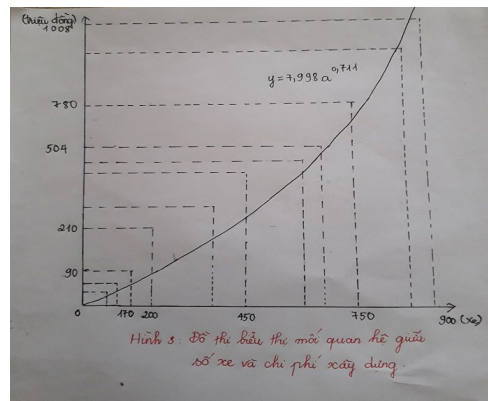 (triệu đồng)
1008
y = 7,998 a^0,711
780
504
210
90
0 170 200 450 750 900 (xe)
Hình 3: Đồ thị biểu thị mối quan hệ giữa
số xe và chi phí xây dựng.